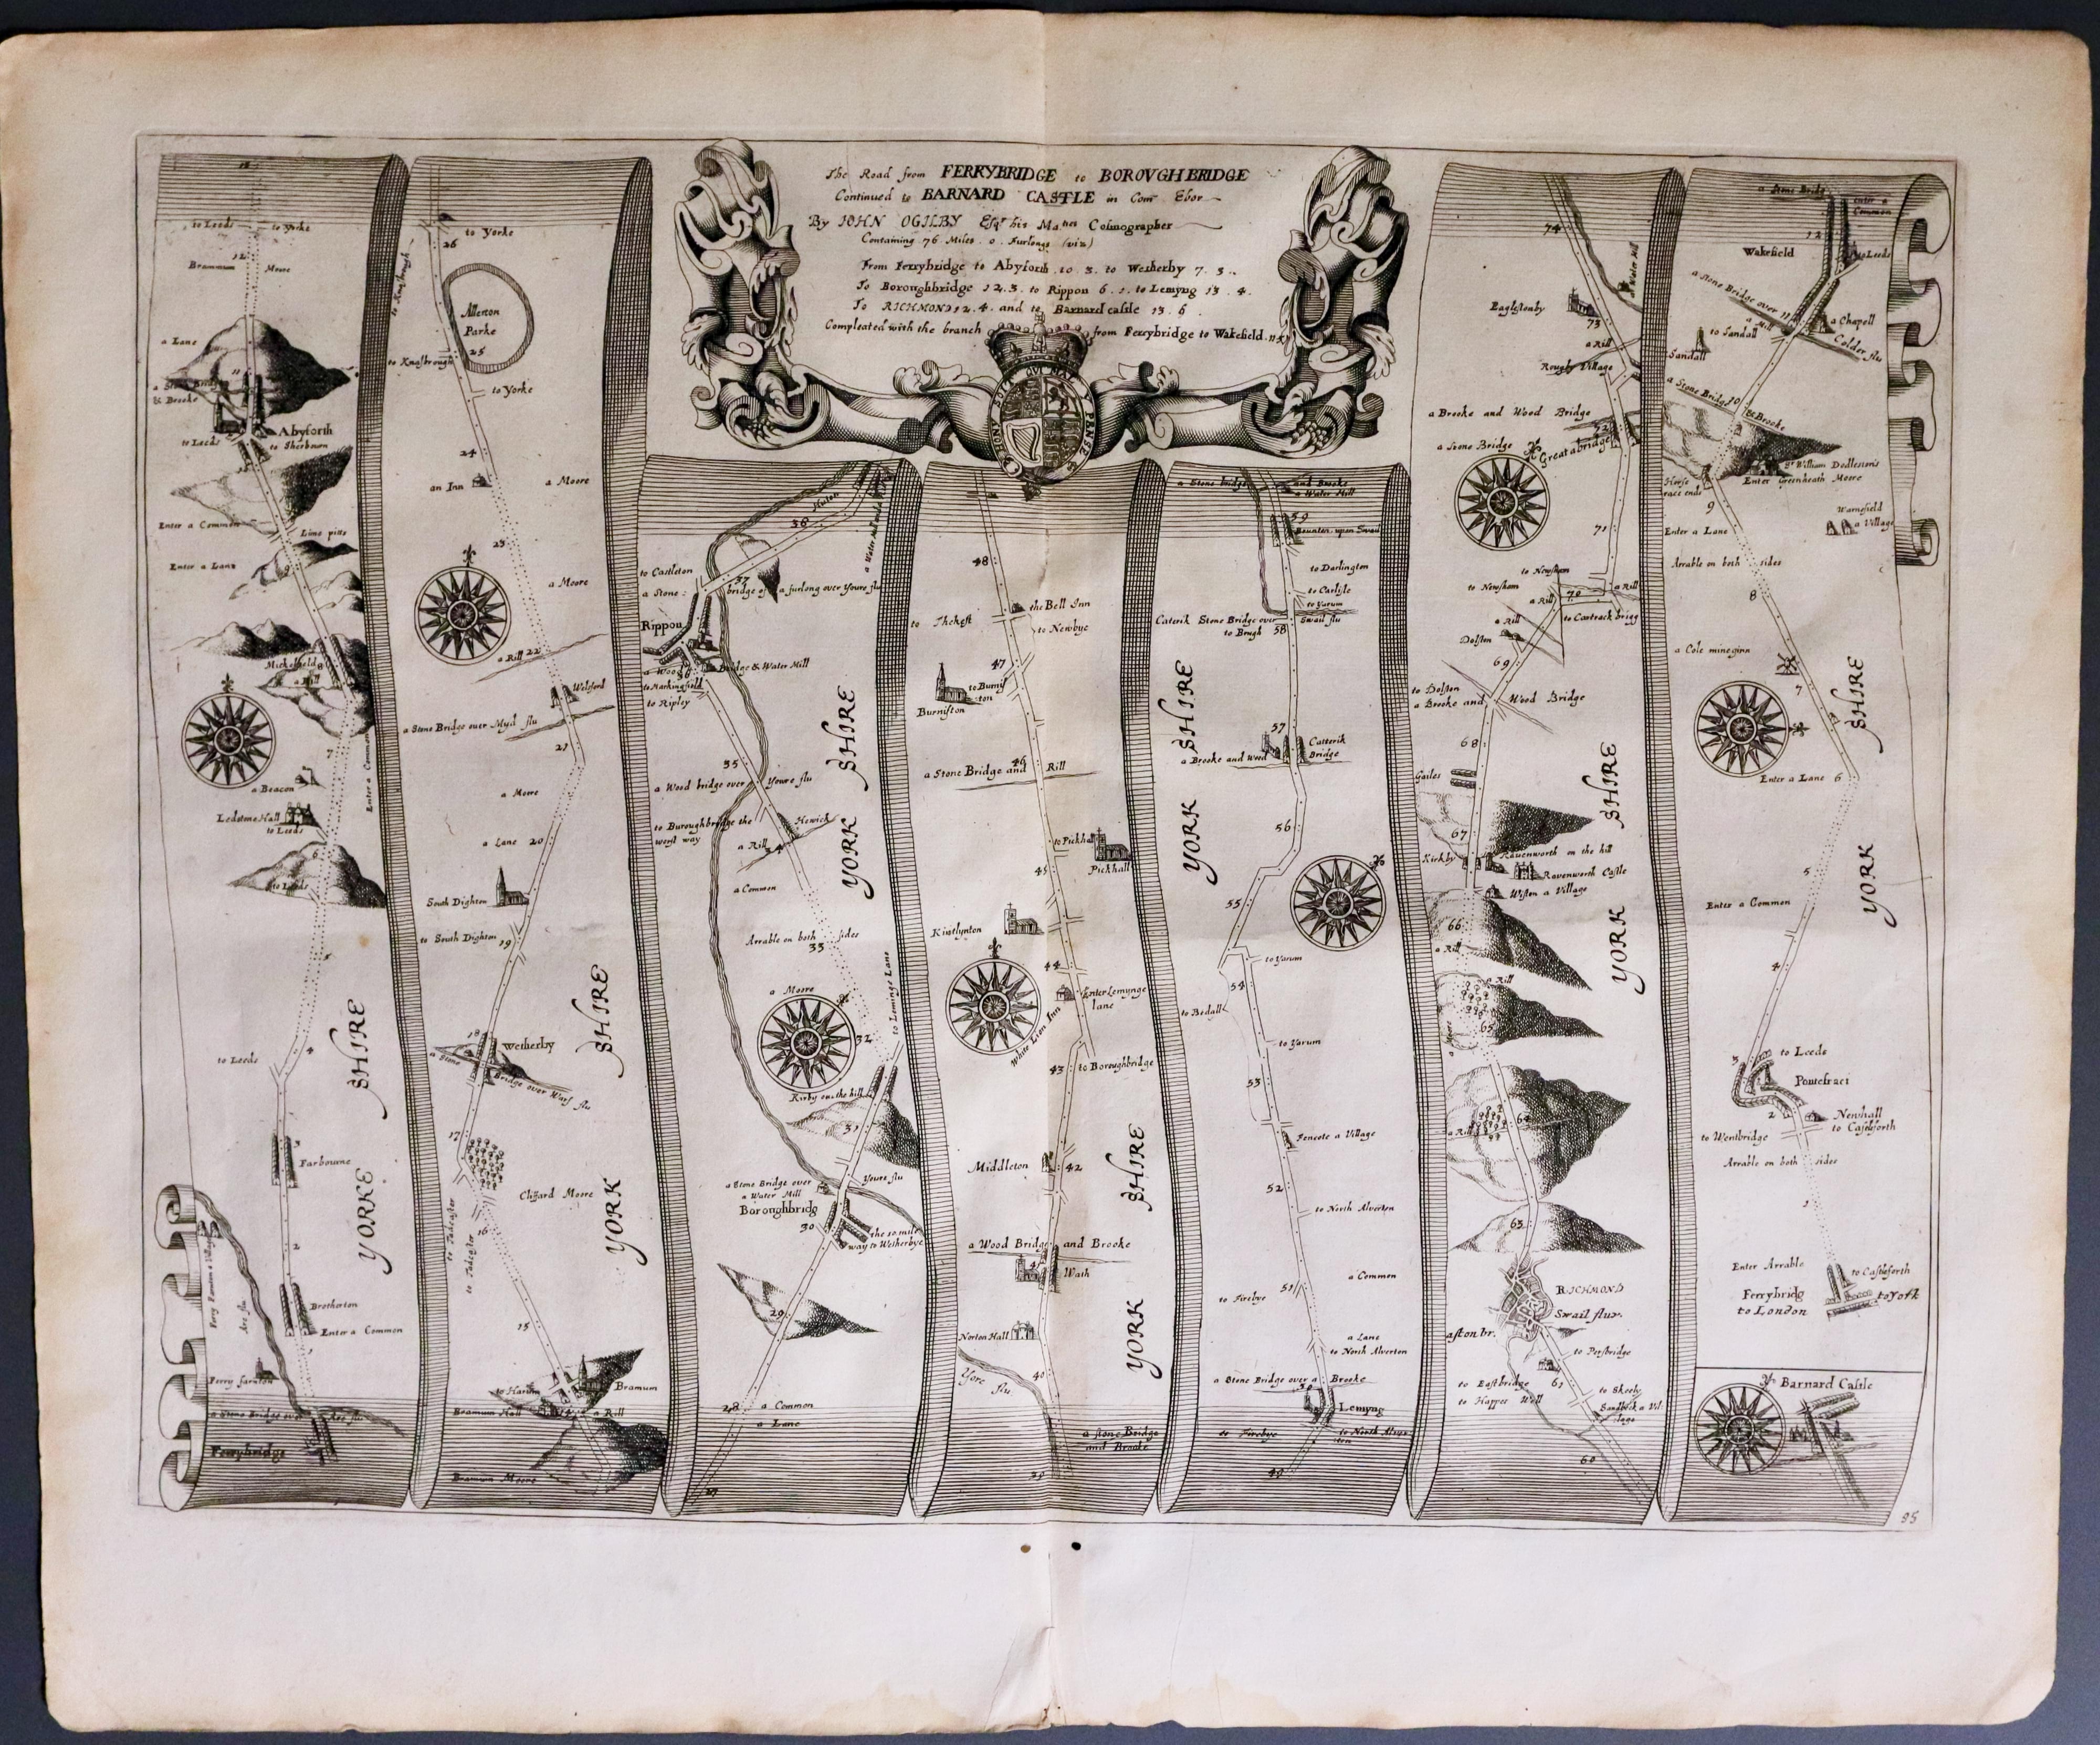 The Road from FERRYBRIDGE to BOROVGHBRIDGE
Continued to BARNARD CASTLE in Com Ebor
By IOHN OGILBY Esqr his Maties Cosmographer
Containing 76 Miles 0 Furlongs (viz)
From Ferrybridge to Abyforth 10. 3. to Wetherby 7. 3.
To Boroughbridge 12. 3. to Rippon 6. 1. to Lemyng 13. 4.
To RICHMOND 12. 4. and to Barnard castle 13. 6
Compleated with the branch from Ferrybridge to Wakefield
HONI SOIT QUI MAL Y PENSE
to Leeds
to Yorke
12
Brammum Moore
a Lane
11
a Stone Bridge
& Brooke
Abyforth
to Leeds
to Sherbourn
10
Enter a Common
Lime pitts
Enter a Lane
9
Mickelfield
8
a Rill
7
Enter a Common
a Beacon
Ledstone Hall
to Leeds
6
to Leeds
5
4
to Leeds
YORKE SHIRE
Farbourne
2
Brotherton
Enter a Common
1
Are flu
a Stone Bridge over Are flu
Ferrybridge
to Knasbrough
to Yorke
26
Allerton
Parke
25
to Knasbrough
to Yorke
24
an Inn
a Moore
23
a Moore
a Rill
22
Welsford
a Stone Bridge over Nyd flu
21
a Moore
a Lane
20
South Dighton
to South Dighton
19
YORK SHIRE
18
Wetherby
a Stone Bridge over Warf flu
17
Clifford Moore
to Tadcaster
to Tadcaster
16
15
Bramum
Bramum Hall
14
a Rill
Bramum Moore
38
to Castleton
37
a Stone bridge of a furlong over Youre flu
Rippon
a Wood Bridge & Water Mill
36
to Markingfield
to Ripley
35
a Wood bridge over Youre flu
YORK SHIRE
to Buroughbridge the
worst way
Hewick
a Rill
34
a Common
Arrable on both sides
33
to Leminge Lane
a Moore
32
Kirby on the hill
31
Youre flu
a Stone Bridge over
a Water Mill
Boroughbridg
30
way to Wetherbye
29
28
a Common
a Lane
27
48
the Bell Inn
to Newbye
47
to Burnis
ton
Burniston
a Stone Bridge and Rill
46
to Pickhal
Pickhall
45
Kirtlynton
44
Enter Lemynge
lane
White Lion Inn
43
to Boroughbridge
Middleton
42
YORK SHIRE
a Wood Bridge and Brooke
41
Wath
Norton Hall
Yore flu.
40
a Stone Bridge
and Brooke
39
a Stone bridge and Brooke
a Water Mill
59
to Darlington
to Carlisle
to Yarum
Caterik Stone Bridge over Swail flu
to Brugh
58
57
Catterik
Bridge
a Brooke and Wood
YORK SHIRE
56
55
to Yarum
54
to Bedall
to Yarum
53
Fencote a Village
52
to North Alverton
a Common
51
to Firebye
a Lane
to North Alverton
a Stone Bridge over a Brooke
50
Lemyng
to Firebye
to North Alver
ton
49
74
a Water Mill
Eaglestonby
73
a Rill
Rougby Village
a Brooke and Wood Bridge
72
a Stone Bridge
Greatabridge
71
to Newsham
to Newsham
a Rill
70
a Rill
to Coatrack brigg
a Rill
Dolston
69
to Dolston
a Brooke and Wood Bridge
68
Gailes
67
Kirkby
Ravenworth on the hill
Ravenworth Castle
Wiston a Village
66
a Rill
a Rill
65
YORK SHIRE
a Rill
64
63
RICHMOND
Swail fluv.
aston br.
to Persbridge
61
to Eastbridge
to Happee Well
to Skeeby
60
a Stone Bridg
Enter a
Common
12
Wakefield
to Leeds
a Stone Bridge over
11
a Mill
a Chapell
to Sandall
Calder flu
Sandall
a Stone Bridge & Brooke
10
Sr William Dodleston's
Enter Greenheath Moore
Horse
race ends
9
Warnefield
a Village
Enter a Lane
Arrable on both sides
8
a Cole mine ginn
7
SHIRE
Enter a Lane 6
YORK
5
Enter a Common
4
3
to Leeds
Pontefract
2
Newhall
to Castleforth
to Wentbridge
Arrable on both sides
1
Enter Arrable
to Castleforth
Ferrybridg
to York
to London
Barnard Castle
85